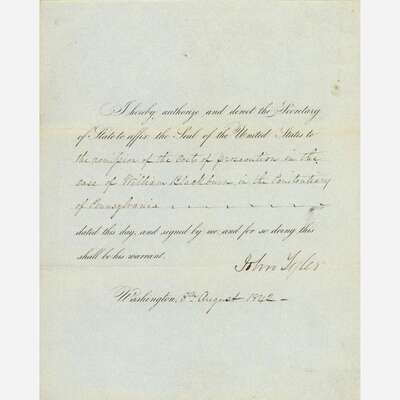 I hereby authorize and direct the Secretary
of State to affix the Seal of the United States to
the remission of the costs of prosecution in the
case of William Blackburn, in the Penitentiary
of Pennsylvania
dated this day, and signed by me and for so doing this
shall be his warrant.
John Tyler
Washington, 8th August 1842